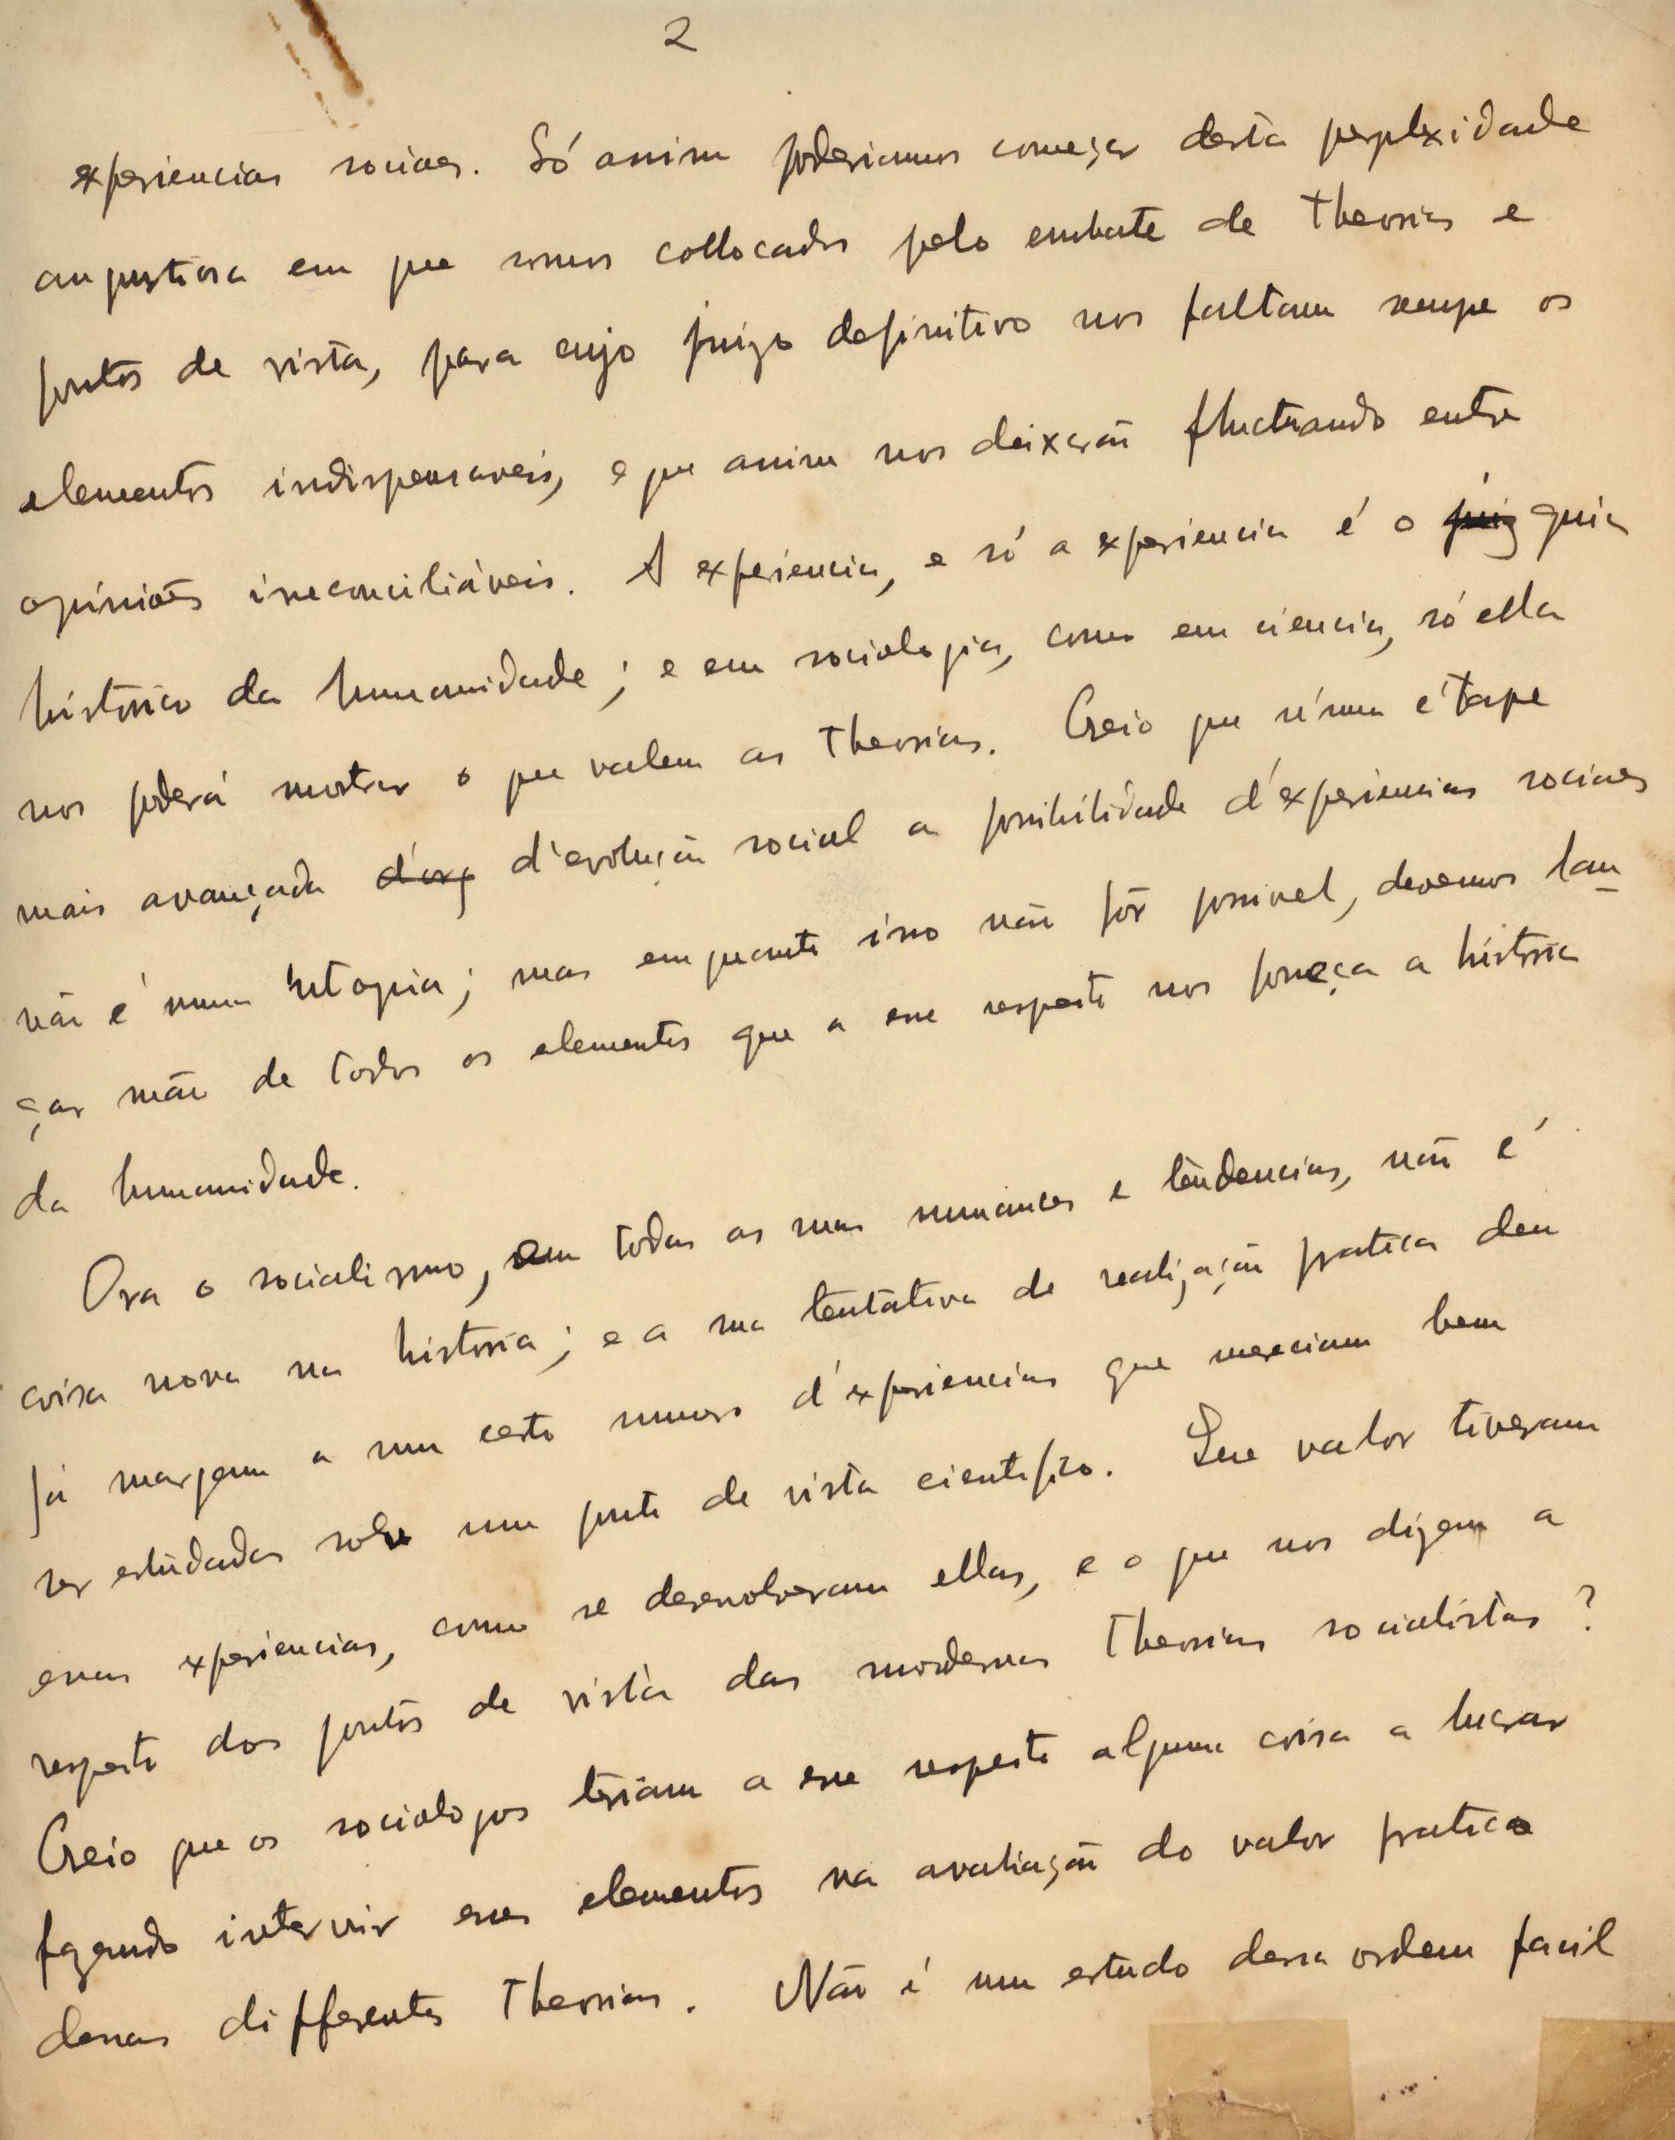 2
experiencias sociaes. Só assim poderiamos começar desta perplexidade
angustiosa em que somos collocados pelo embate de theorias e
pontos de vista, para cujo juizo definitivo nos faltam sempe os
elementos indispensaveis, e que assim nos deixarão fluctuando entre
opiniões irreconciliáveis. A experiencia, e só a experiencia é o juiz guia
historico da humanidade; e em sociologia, como em ciencia, só ella
nos poderá mostrar o que valem as theorias. Creio que n'uma étape
mais avançada d'org d'evolução social a possibilidade d'experiencias sociaes
não é uma utopia; mas emquanto isso não fôr possivel, devemos lan
çar mão de todos os elementos que a esse respeito nos forneça a historia
da humanidade.
Ora o socialismo, em todas as suas nuances e tendencias, não é
coisa nova na historia; e a sua tentativa de realização pratica deu
já margem a um certo numero d'experiencias que mereciam bem
ser estudadas sobre um ponto de vista cientifico. Que valor tiveram
essas experiencias, como se desenvolveram ellas, e o que nos dizem a
respeito dos pontos de vista das modernas theorias socialistas?
Creio que os sociologos teriam a esse respeito alguma coisa a lucrar
fazendo intervir esses elementos na avaliação do valor pratico
dessas differentes theorias. Não é um estudo dessa ordem facil